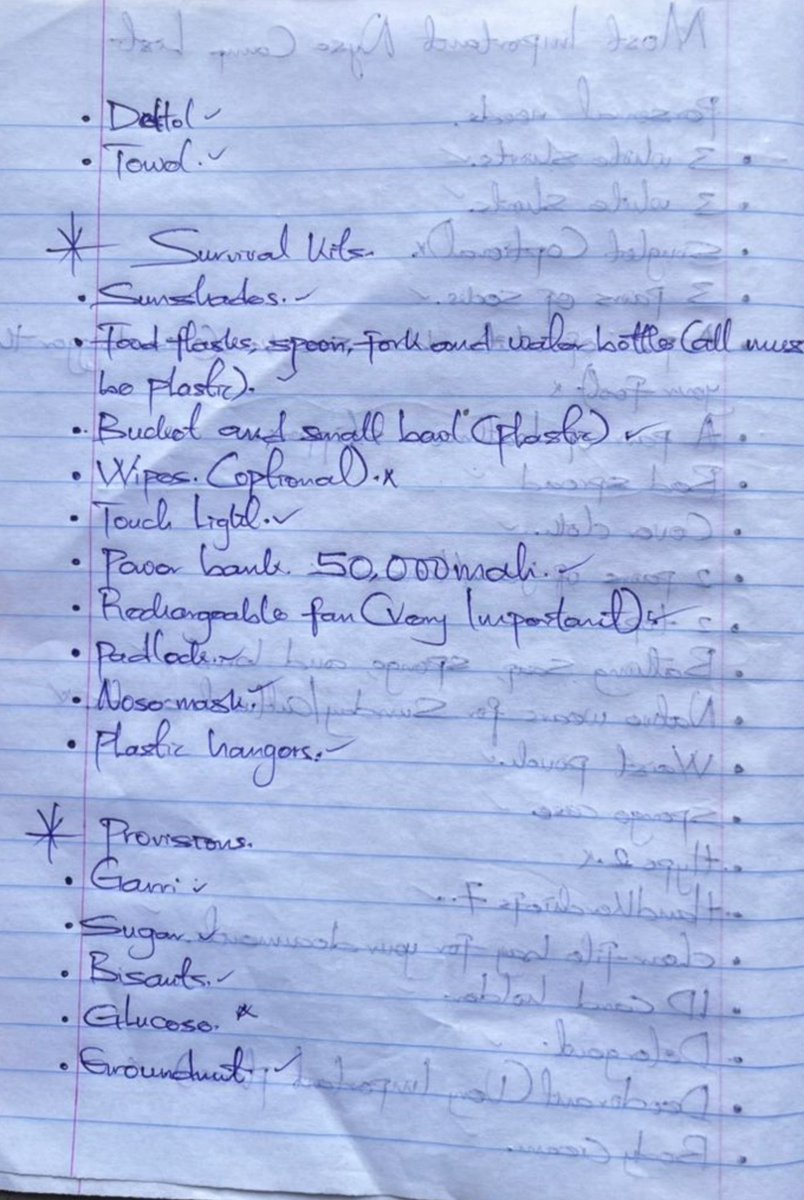 • Dettol ✓
• Towel. ✓
* Survival Kits.
• Sunshades. ✓
• Food flasks, spoon, fork and water bottle (all must
be plastic). ✓
• Bucket and small bowl (plastic) ✓
• Wipes. (optional). x
• Touch Light. ✓
• Power bank. 50,000mah. ✓
• Rechargeable fan (Very Important) x
• Padlock. ✓
• Nose mask. ✓
• Plastic hangers. ✓
* Provisions.
• Garri ✓
• Sugar. ✓
• Biscuits. ✓
• Glucose. x
• Groundnut. ✓